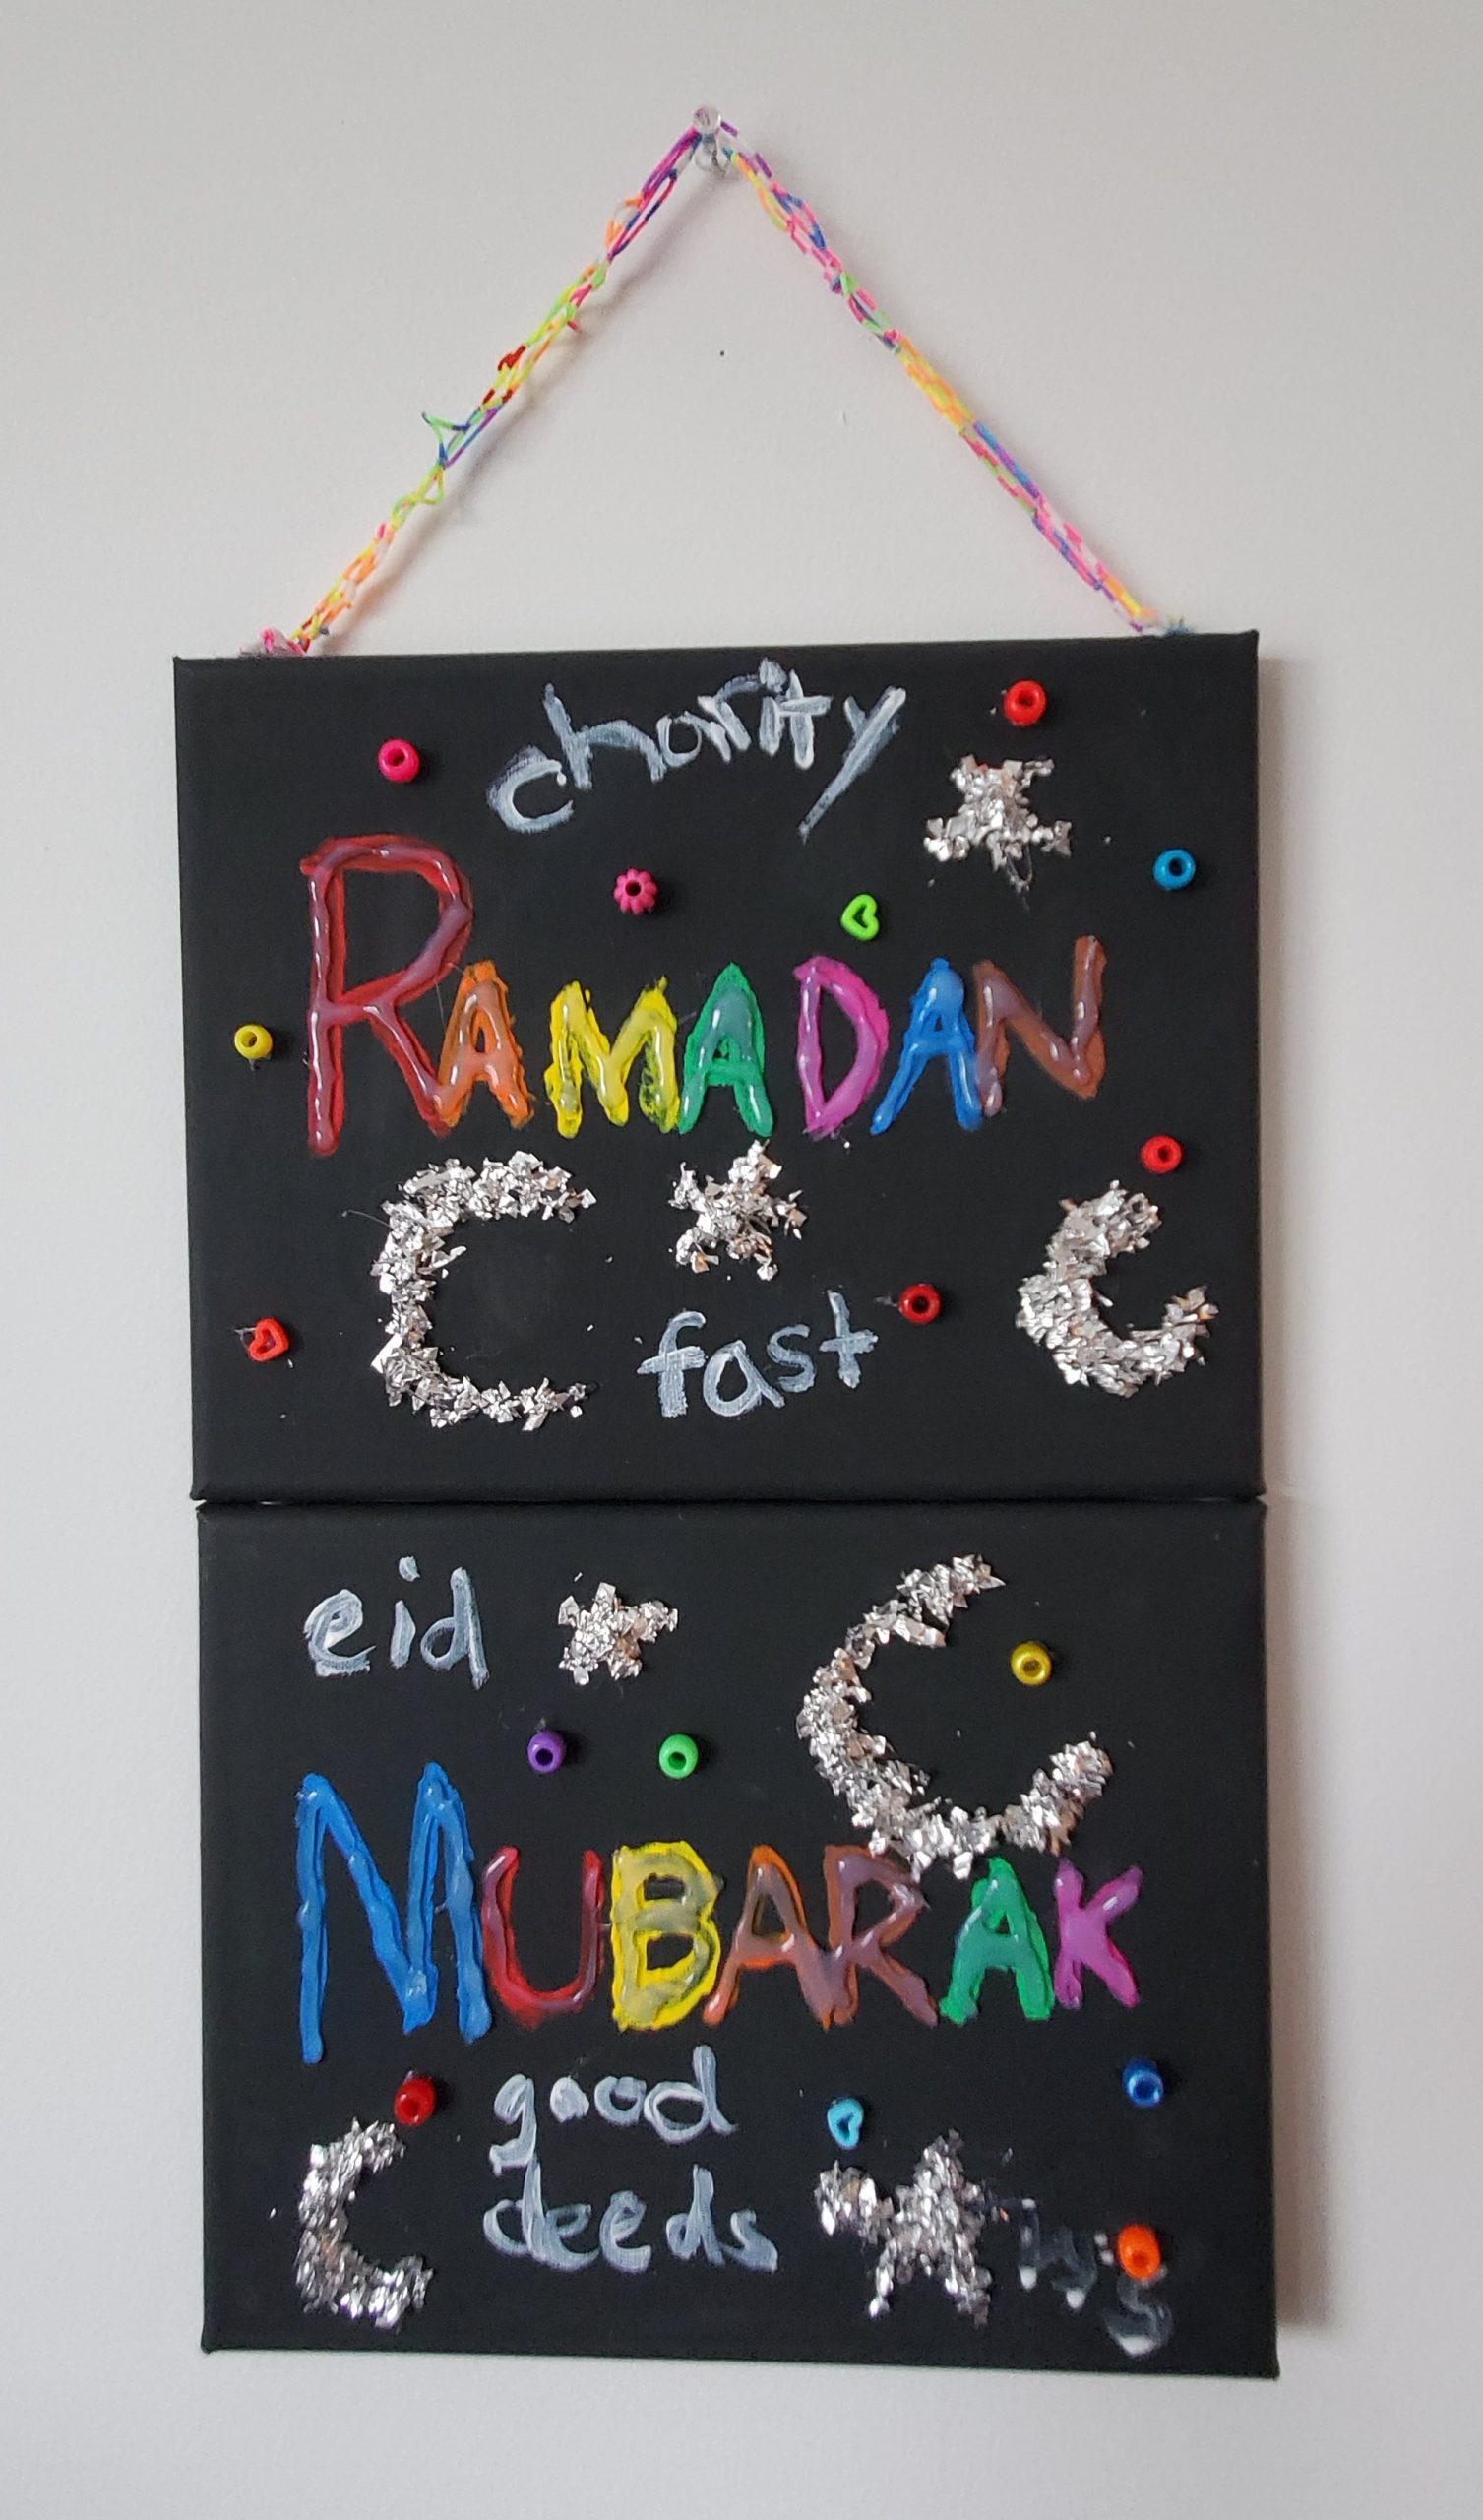 charity
RAMADAN
fast
eid
MUBARAK
good
deeds